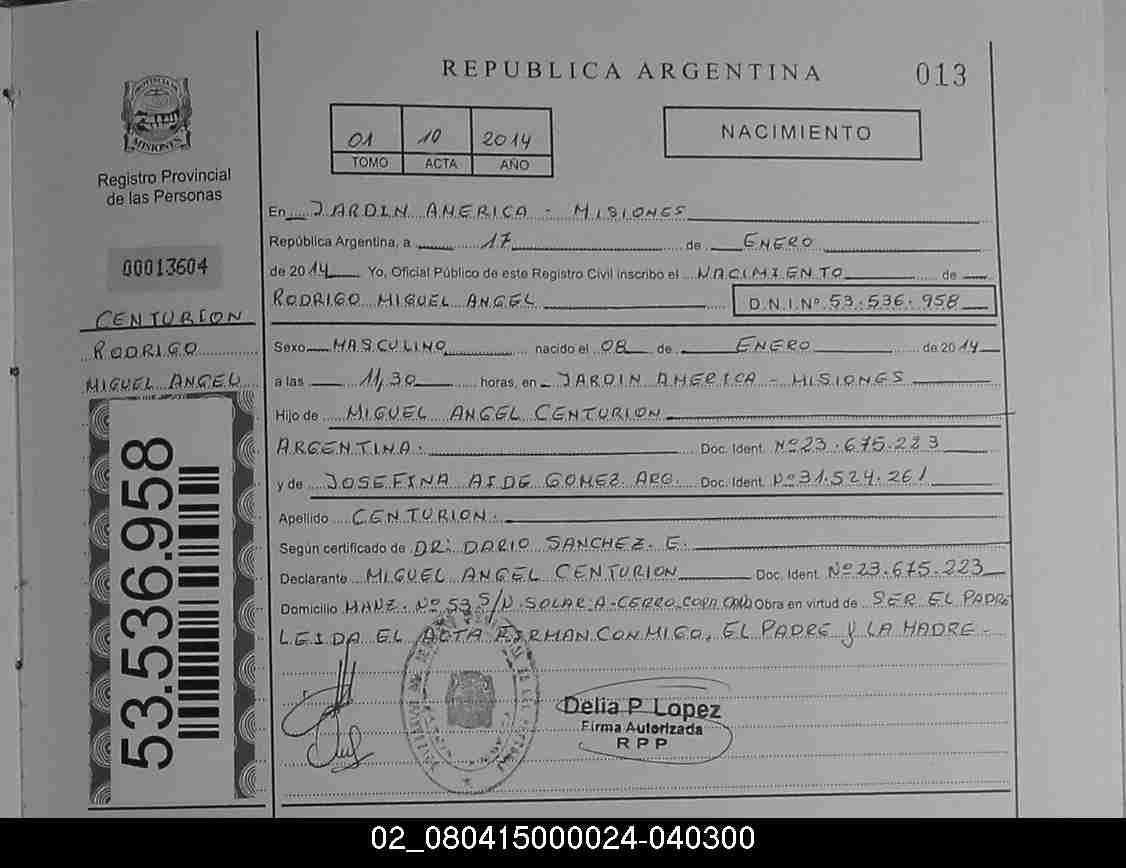 REPUBLICA ARGENTINA
013
PROVINCIA DE
MISIONES
Registro Provincial
de las Personas
00013604
CENTURION
RODRIGO
MIGUEL ANGEL
53.536.958
01 10 2014
TOMO ACTA AÑO
NACIMIENTO
En JARDIN AMERICA - MISIONES
República Argentina, a 17 de ENERO
de 2014 Yo, Oficial Público de este Registro Civil inscribo el NACIMIENTO de
RODRIGO MIGUEL ANGEL D.N.I.Nº 53.536.958
Sexo MASCULINO nacido el 08 de ENERO de 2014
a las 11,30 horas, en JARDIN AMERICA - MISIONES
Hijo de MIGUEL ANGEL CENTURION
ARGENTINA. Doc. Ident. Nº 23.675.223
y de JOSEFINA AIDE GOMEZ ARG. Doc. Ident. Nº 31.524.261
Apellido CENTURION.
Según certificado de DR: DARIO SANCHEZ. E.
Declarante MIGUEL ANGEL CENTURION Doc. Ident. Nº 23.675.223
Domicilio MANZ. Nº 53 S/N. SOLAR A-CERRO CORA Obra en virtud de SER EL PADRE
LEIDA EL ACTA FIRMAN CONMIGO, EL PADRE y LA MADRE -
Delia P Lopez
Firma Autorizada
R P P
02_080415000024-040300